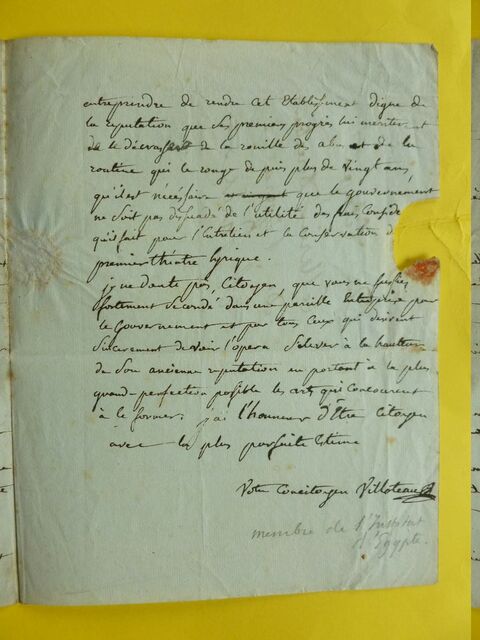 entreprendre de rendre cet Etablissement digne de
la reputation que ses premiers progrès lui meriterent
de le décrasser de la rouille des abus et de la
routine qui le ronge depuis plus de vingt ans,
qu'il est nécéssaire que le gouvernement
ne soit pas de l'utilité des frais
qu'il fait pour l'Entretien et la Conservation du
premier théatre lyrique.
je ne doute pas, Citoyen, que vous ne fussiés
fortement secondé dans une pareille Entreprise par
le Gouvernement et par tous Ceux qui desirent
Sincerement de voir l'opera S'elever à la hauteur
de Son ancienne reputation en portant à la plus
grande perfection possible les arts qui concourent
à le former. j'ai l'honneur d'Etre Citoyen
avec la plus parfaite Estime
Votre Concitoyen Villoteau
membre de l'Institut
d'Egypte.